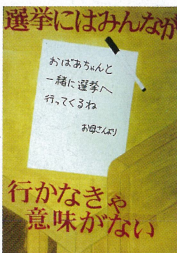 選挙にはみんなが
おばあちゃんと
一緒に選挙へ
行ってくるね
お母さんより
行かなきゃ
意味がない